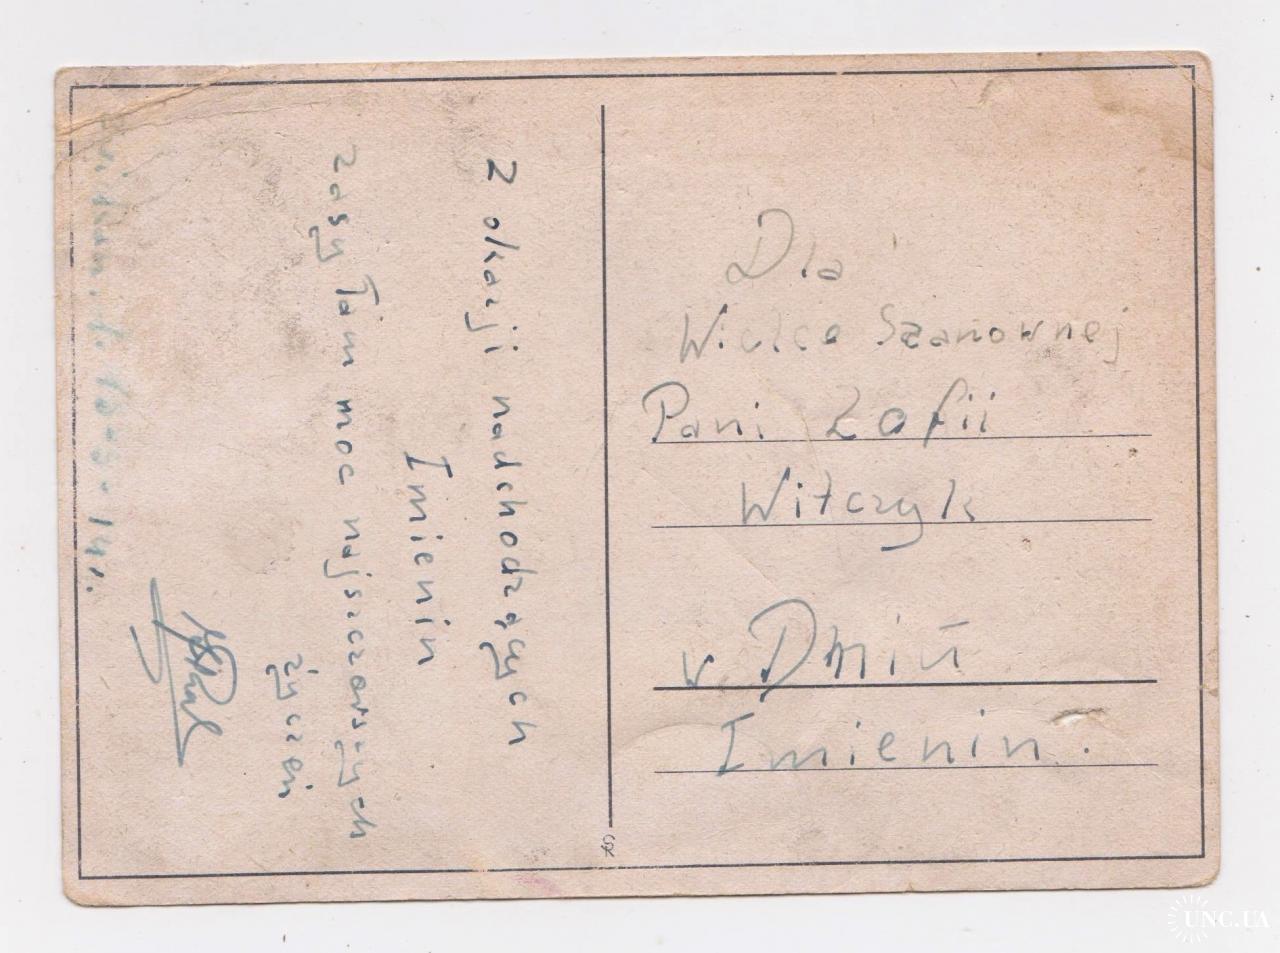 Z okazji nadchodzących
Imienin
zasyłam moc najszczerszych
życzeń
15-5-
Dla
Wielce Szanownej
Pani Zofii
Witczyk
w Dniu
Imienin.
UNC.UA